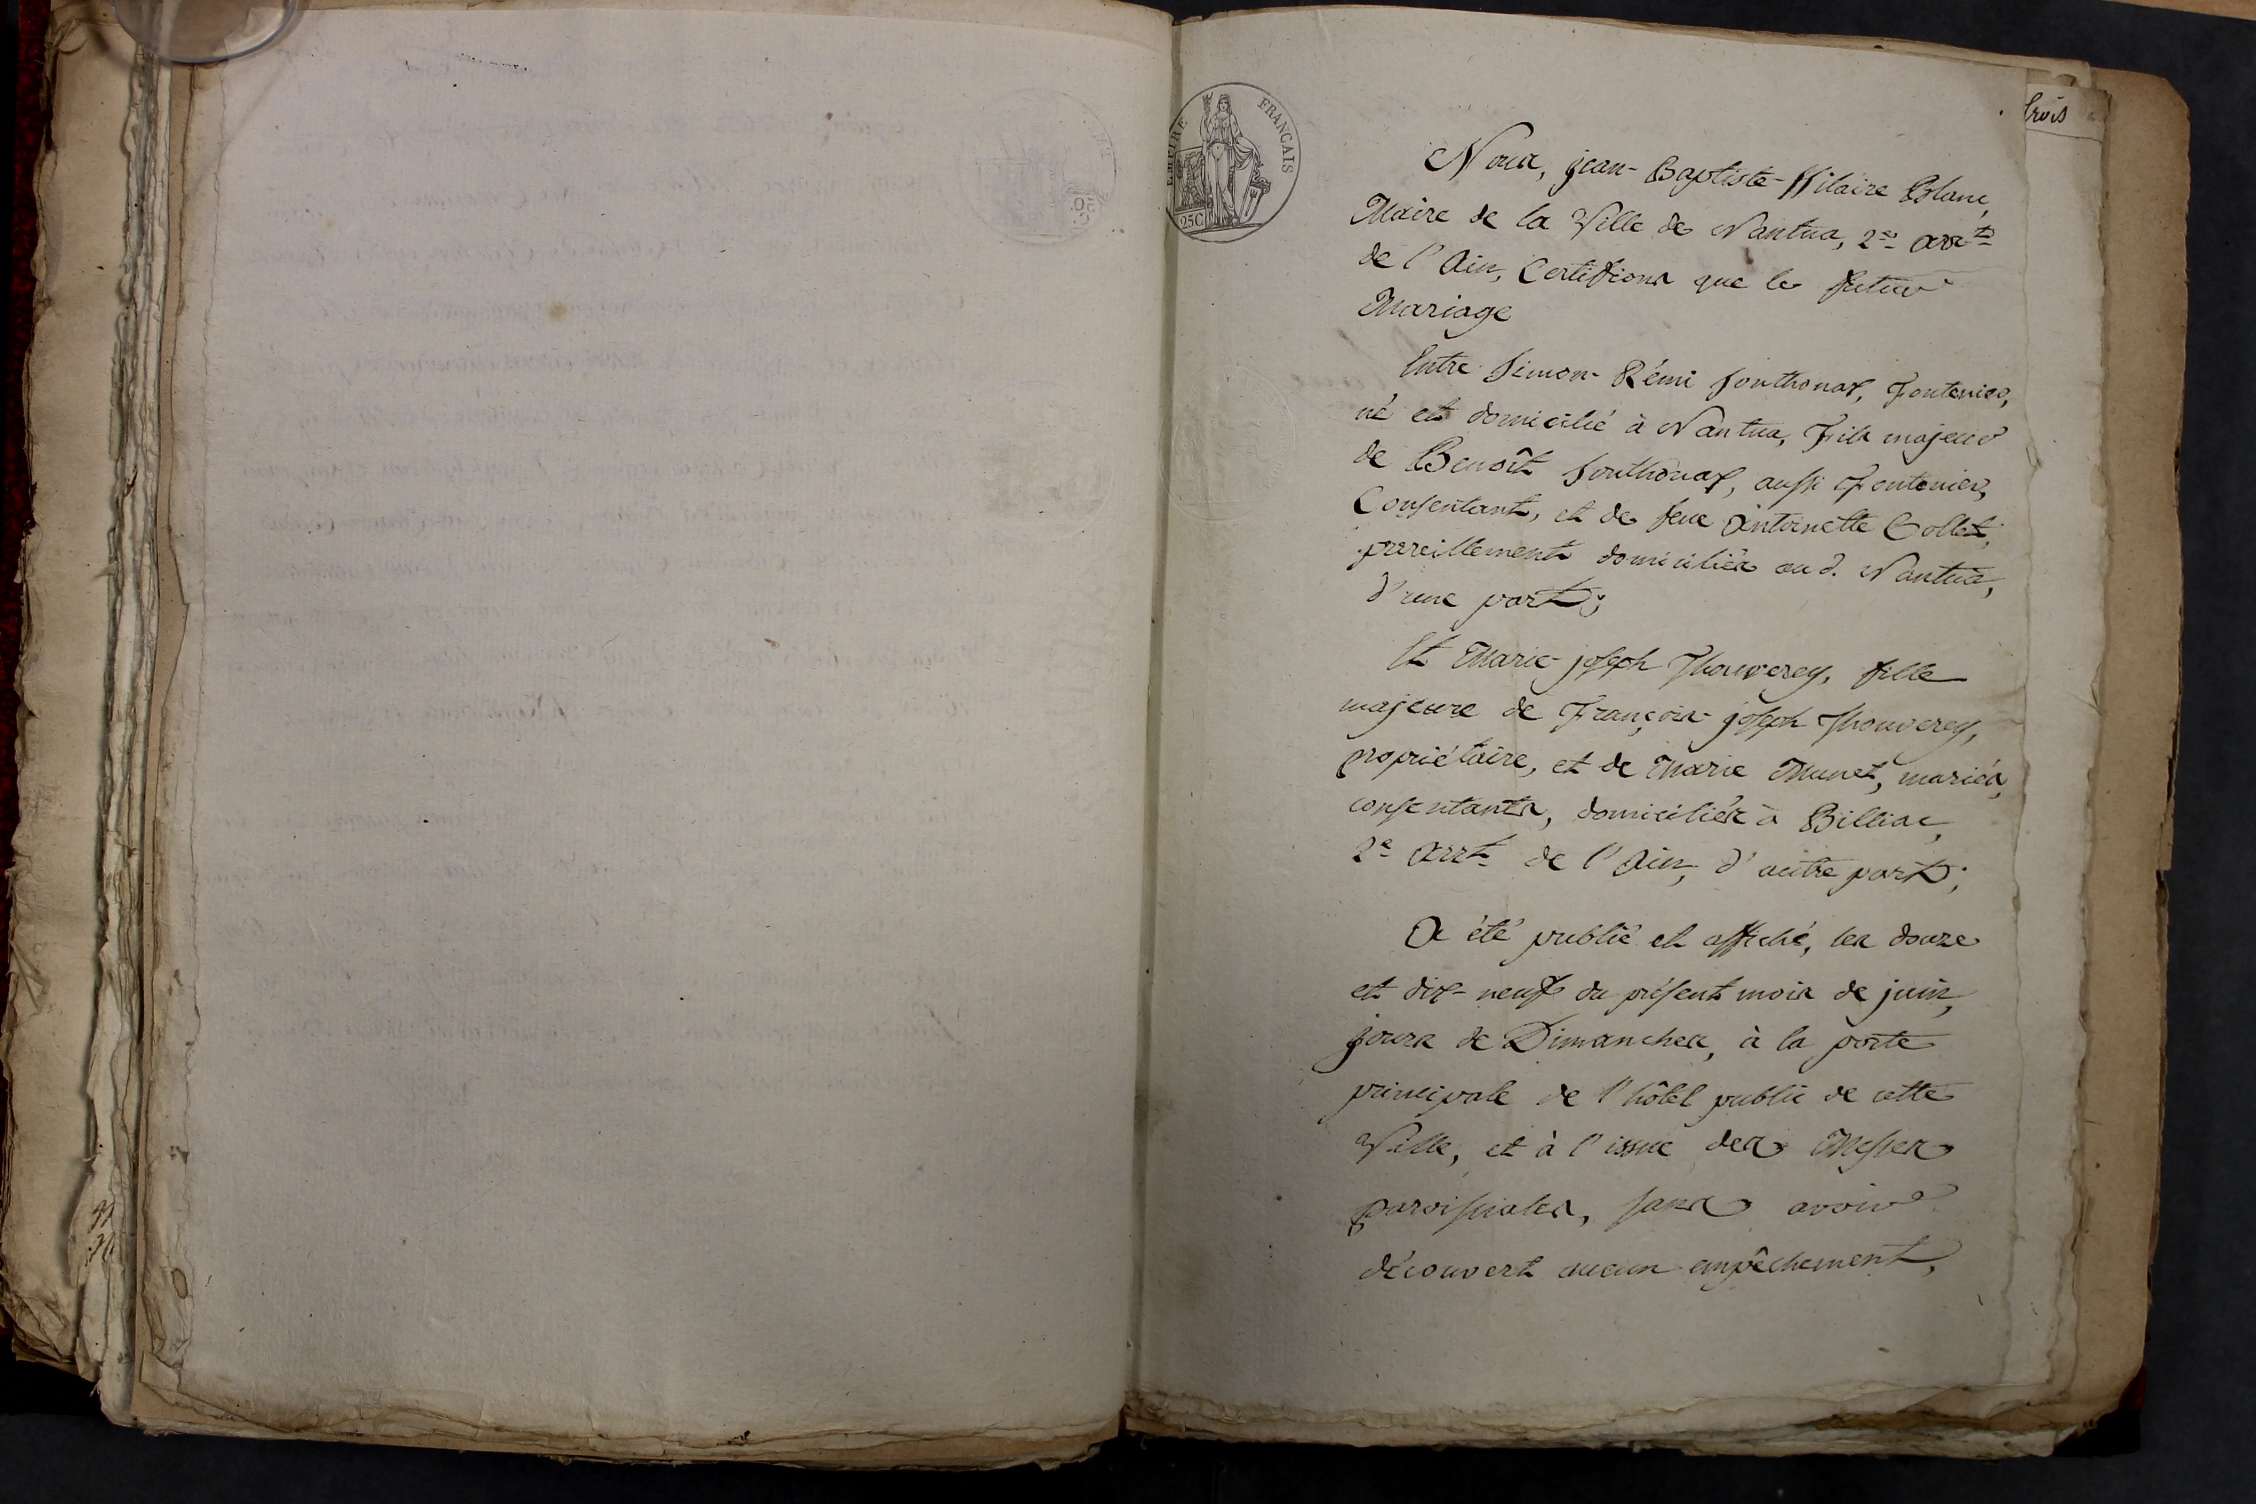 EMPIRE FRANÇAIS
25C
trois
Nous, jean-Baptiste-Hilaire Blanc,
Maire de la Ville de Nantua, 2e arrt
de l'Ain, Certifions que le futur
Mariage
Entre Simon-Rémi Sonthonax, Fontenier,
né et domicilié à Nantua, Fils majeur
de Benoît Sonthonax, aussi Fontenier,
Consentant, et de feue Antoinette Collet,
pareillement domiciliés aud. Nantua,
d'une part;
Et Marie-joseph Thouverey, fille
majeure de François-joseph Thouverey,
propriétaire, et de Marie Munet, mariés,
consentants, domiciliés à Billiac,
2e arrt de l'Ain, d'autre part;
A été publié et affiché, les douze
et dix-neuf du présent mois de juin,
jours de Dimanches, à la porte
principale de l'hôtel public de cette
Ville, et à l'issue des Messes
paroissiales, sans avoir
découvert aucun empêchement,